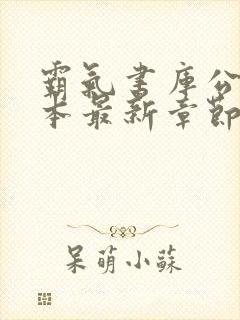 霸氣書庫公
本最新章節
呆萌小蘇